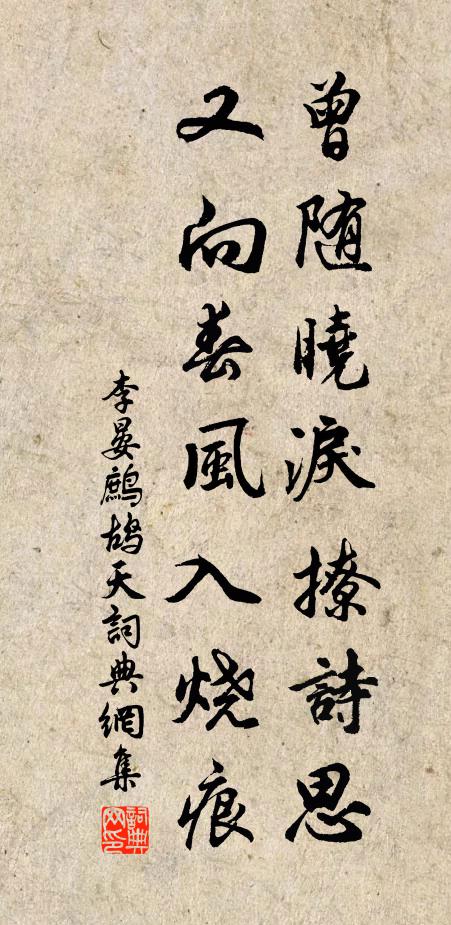 曾随曉淚撩詩思
又向春風入烧痕
李晏鷓鴣天詞典網集
詞典網印